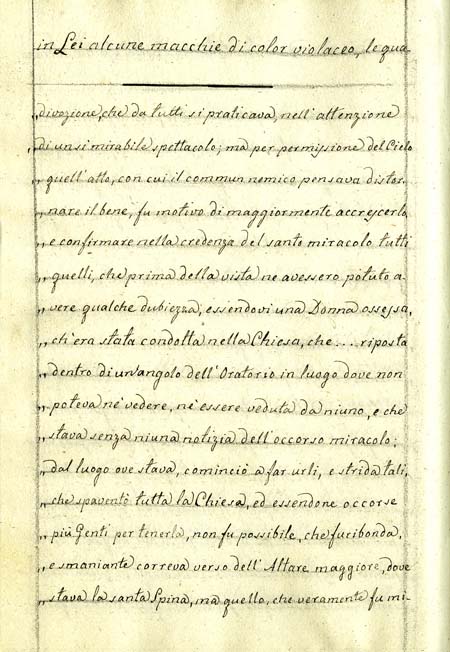 in Lei alcune macchie di color violaceo, le qua-
„divozione, che da tutti si praticava, nell' attenzione
„di un sì mirabile spettacolo; ma per permissione del Cielo
„quell' atto, con cui il commun nemico pensava distor-
„nare il bene, fu motivo di maggiormente accrescerlo
„e confirmare nella credenza del santo miracolo tutti
„quelli, che prima della vista ne avessero potuto a-
„vere qualche dubiezza; essendovi una Donna ossessa,
„ch'era stata condotta nella Chiesa, che ... riposta
„dentro di un'angolo dell' Oratorio in luogo dove non
„poteva nè vedere, nè essere veduta da niuno, e che
„stava senza niuna notizia dell' occorso miracolo;
„dal luogo ove stava, cominciò a far urli, e strida tali,
„che spaventò tutta la Chiesa, ed essendone occorse
„più Genti per tenerla, non fu possibile, che furibonda,
„e smaniante correva verso dell' Altare maggiore, dove
„stava la santa Spina, ma quello, che veramente fu mi-